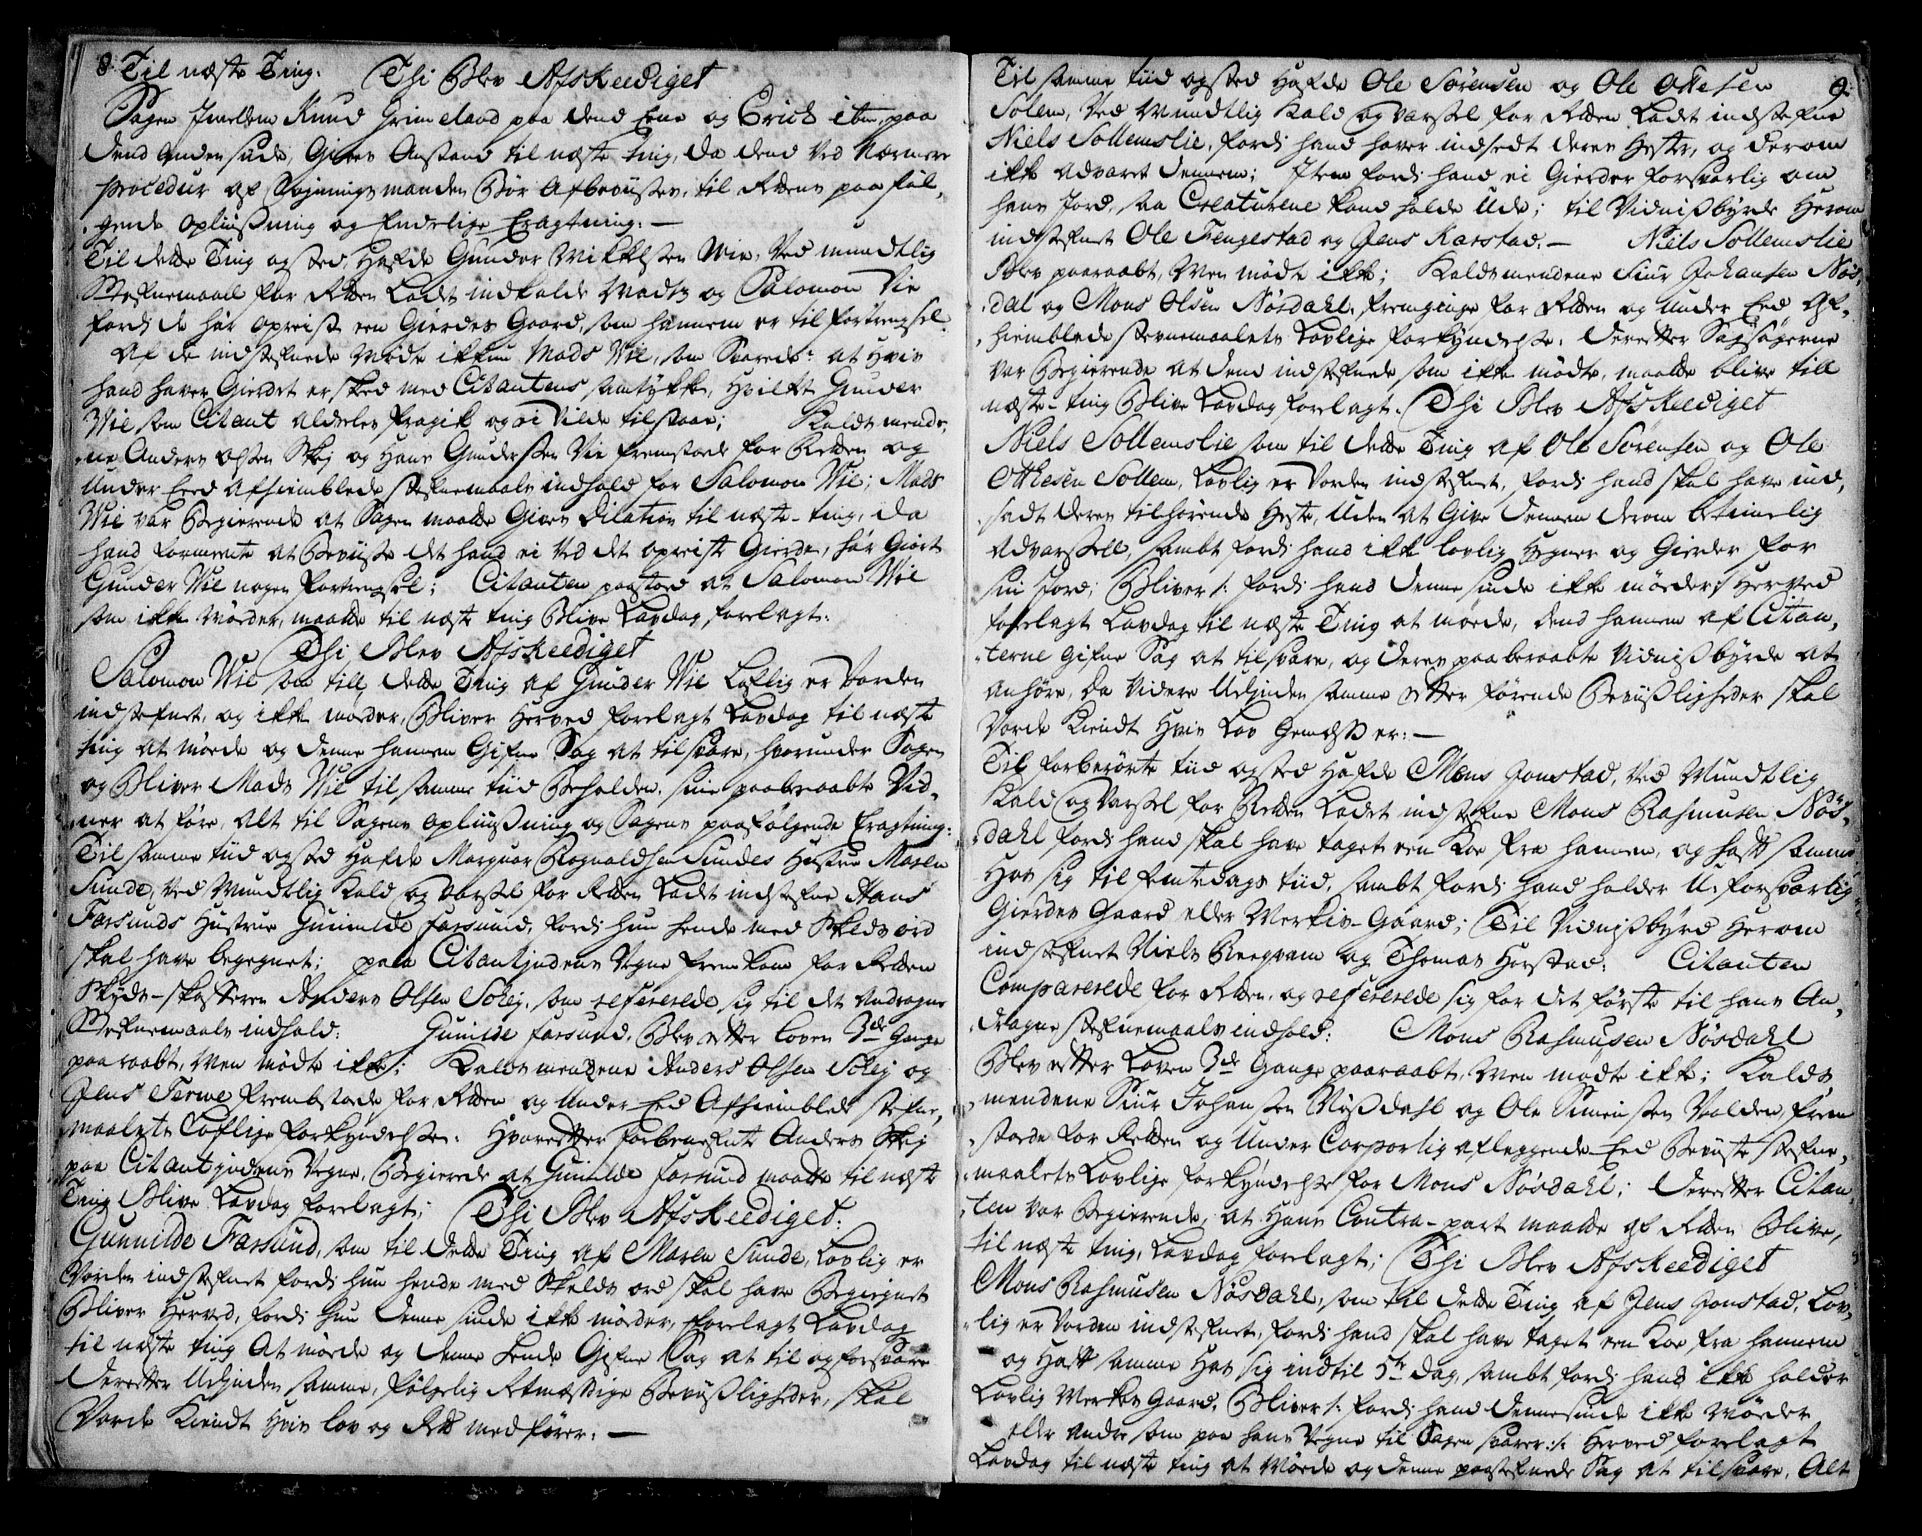 8. Til næste Ting. Thi Blev Afskeediget
Sagen Jmellem Knud Grimeland paa dend Eene og Erick paa
dend anden side, Gives Anstand til næste ting, da dend ved Nærmere
procedur af Sigtnings manden Bør Afbeviises, til Rettens paa føl,
gende opliussning og Endelige Eragtning. —
Til dette Ting og sted, Hafde Gunder Mikkelsen Wie, Ved mundtlig
Stefnemaall for Retten Ladet indkalde Mads og Salomon Vie
fordj de har opreist een Gierdes Gaard, som hannem er til fortrengsel.
Af de indstefnede møtte ikkun Mads Wie, som Svarede: at Hvis
hand haver Gierdet er sked med Citantens samtykke, Hvilket Gunder
Wie som Citant aldeles fragik og ei Vilde tilstaae; Kalds mende,
ne Anders Olsen Skej og Hans Gundersen Vie fremstoede for Retten og
Under Eed afhiemblede stefnemaals indhold for Salomon Wie; Mads
Wie var Begierende at Sagen maatte Gives Dilation til næste ting, da
hand formente at Beviise det hand ei Ved det opreiste Gierde, har Giort
Gunder Wie nogen fortrengsel; Citanten paastoed at Salomon Wie
som ikke Møeder, maatte til næste ting Blive Lavdag forelagt.
Thi Blev Afskeediget
Salomon Wie som till dette Ting af Gunder Wie Loflig er Vorden
indstefnet, og ikke møeder, Bliver Herved forelagt Lavdag til næste
ting at møede og denne hannem Gifne Sag at tilsvare, hvorunder Sagen
og Bliver Mads Wie til samme tiid Beholden, sine paaberaabte Vid,
ner at føre, alt til Sagens opliussning og Sagens paafølgende Eragtning.
Til samme tiid og sted Hafde Marquor Rognaldsen Sundes Hustrue Maren
Sunde, ved Mundtlig Kald og Varsel for Retten Ladet indstefne Hans
Farsunds Hustrue Gunnilde farsund, fordj hun hende med Skields ord
skal have begegnet; paa Citantindens Vegne frem kom for Retten
Skyds-skafferen Anders Olsen Schej, som refererede sig til det Andragne
Stefnemaals indhold: Gunilde farsund, Blev efter loven 3de Gange
paaraabt, Men mødte ikke; Kaldsmendene Anders Olsen Schej og
Jens Terwe frembstoede for Retten og Under Eed Afhiemblede stefne,
maalets Loflige forkyndelse. Hvorefter forbenefnte Anders Skej
paa Citantindens Vegne, Begierede at Gunilde farsund maatte til næste
Ting Blive Lavdag forelagt; Thi Blev Afskeediget.
Gunnilde Farsund, som til dette Ting af Maren Sunde, Lovlig er
Vorden indstefnet fordj hun hende med Skields ord skal have Begiegnet
Bliver Herved, fordj hun denne sinde ikke møeder, forelagt Lavdag
til næste ting At møede og denne hende Gifne Sag at til og forsvare
derefter Udj den samme, følgelig Retmæssige Beviisligheder, skal
Vorde Kiendt Hvis lov og Ret medfører. —
Til samme tiid og sted Hafde Ole Sørensen og Ole Ottesen 9.
Solem, Ved Mundtlig Kald og Varsel for Retten Ladet indstefne
Niels Sollemslie, fordj hand haver indsedt deres Heste, og derom
ikke advaret dennem; Item fordj hand ei Gierder forsvarlig om
hans Jord, saa Creaturene kand holde Ude; til Vidnissbyrde Herom
indstefnet Ole Fengestad og Jens Karstad. — Niels Sollemslie
Blev paaraabt, Men mødte ikke; Kaldsmendene Siur Johansen Nøs,
dal og Mons Olsen Nøsdahl, fremginge for Retten og under Eed Af,
hiemblede stevnemaalets Lovlige forkyndelse. Derefter Sagsøgerne
var Begierende at dend indstefnede som ikke mødte, maatte blive till
næste-ting Blive Lavdag forelagt. Thi Blev Afskeediget
Niels Sollemslie som til dette Ting af Ole Sørensen og Ole
Ottesen Sollem, Lovlig er Vorden indstefnet, fordj hand skal have ind,
sadt deres tilhørende Heste, Uden at Give dennem derom betimelig
Advarssell, sambt fordj hand ikke lovlig Hegner og Gierder for
sin Jord; Bliver /: fordj hand denne sinde ikke møeder :/ Herved
forelagt Lavdag til næste Ting at møede, dend hannem af Citan,
terne Gifne Sag at tilsvare, og deres paaberaabte Vidnissbyrde at
anhøre, da Videre Udj den samme efter førende Beviisligheder skal
Vorde Kiendt Hvis Lov Gemæss er. —
Til forberørte tiid og sted Hafde Mons Jonstad, Ved Mundtlig
Kald og Varssel for Retten Ladet indstefne Mons Rasmusen Nøs,
dahl fordj hand skal have taget een Koe fra hannem, og haft samme
Hos sig til femtedags tiid, sambt fordj hand holder U-forsvarlig
Gierdes Gaard eller Merkis-Gaard; Til Vidnissbyrd Herom
indstefnet Niels Reegvam og Thomas Horstad: Citanten
Comparerede for Retten, og refererede sig for det første til hans An,
dragne stefnemaals indhold: Mons Rasmusen Nøsdahl
Blev efter Loven 3de Gange paaraabt, Men mødte ikke; Kalds
mendene Siur Johanssen Nøssdahl og Ole Simenssen Volden, frem
stoede for Retten og Under Corporlig aflæggende Eed Beviiste Stefne,
maalets Lovlige forkyndelse for Mons Nøsdahl; derefter Citan,
ten var Begierende, at Hans Contra-part maatte af Retten Blive,
til næste ting, Lavdag forelagt; Thi Blev Afskeediget
Mons Rasmusen Nøsdahl, som til dette Ting af Jens Jonstad, Lov,
lig er Vorden indstefnet, fordj hand skal have taget een Koe fra hannem
og Haft samme Hos sig indtil 5te dag, sambt fordj hand ikke holder
Lovlig Merkes Gaard, Bliver /: fordj hand denne sinde ikke Møeder
eller Andre som paa hans Vegne til Sagen svarer :/ Herved forelagt
Lavdag til næste ting at Møede og denne paastefnede Sag at tilsvare. Alt